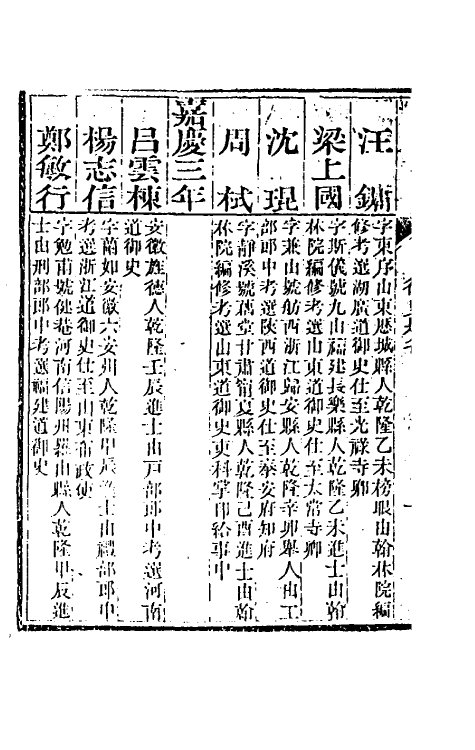 汪鏞
字東序山東歷城縣人乾隆乙未榜眼由翰林院編
修考選湖廣道御史仕至光祿寺卿
梁上國
字斯儀號九山福建長樂縣人乾隆乙未進士由翰
林院編修考選山東道御史仕至太常寺卿
沈琨
字兼山號舫西浙江歸安縣人乾隆辛卯舉人由工
部郎中考選陝西道御史仕至泰安府知府
周栻
字靜溪號偶堂甘肅甯夏縣人乾隆己酉進士由翰
林院編修考選山東道御史吏科掌印給事中
嘉慶三年
呂雲棟
安徽旌德人乾隆壬辰進士由戶部郎中考選河南
道御史
楊志信
字蘭如安徽六安州人乾隆甲辰進士由禮部郎中
考選浙江道御史仕至山東布政使
鄭敏行
字勉甫號健菴河南信陽州羅山縣人乾隆甲辰進
士由刑部郎中考選福建道御史